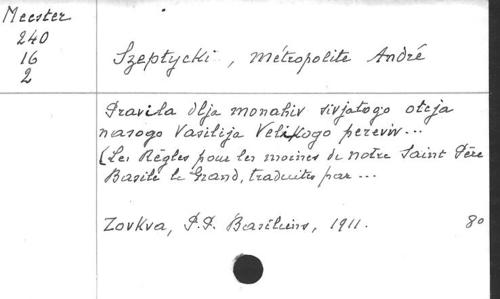 Meester
240
16
2
Szeptycki, Métropolite André
Pravila dlja monahiv svjatogo otcja
nasogo Vasilija Velikogo pereviv...
(Les Règles pour les moines de notre Saint Père
Basile le Grand, traduites par ...
Zovkva, P.P. Basiliens, 1911. 80